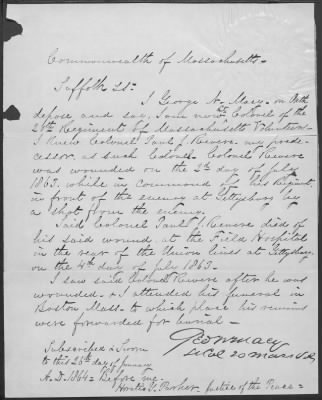 Commonwealth of Massachusetts.
Suffolk SS.
I George N. Macy. on Oath
depose and say, I am now Lt Colonel of the
20th Regiment of Massachusetts Volunteers.
I knew Colonel Paul J. Revere, my prede-
cessor, as such Colonel. Colonel Revere
was wounded on the 2d day of July
1863, while in command of this Regiment,
in front of the enemy at Gettysburg by
a shot from the enemy.
Said Colonel Paul J. Revere died of
his said wound, at the Field Hospital
in the rear of the Union lines at Gettysburg,
on the 4th day of July 1863.
I saw said Colonel Revere after he was
wounded. & I attended his funeral in
Boston Mass. to which place his remains
were forwarded for burial.
Geo N Macy
Lt Col 20 Mass Vols
Subscribed & Sworn
to this 26th day of January
A.D. 1864. Before me.
Horatio G. Parker Justice of the Peace.